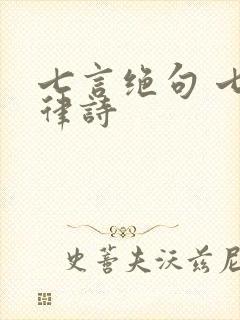 七言绝句 七
律詩
史蒂夫沃兹尼